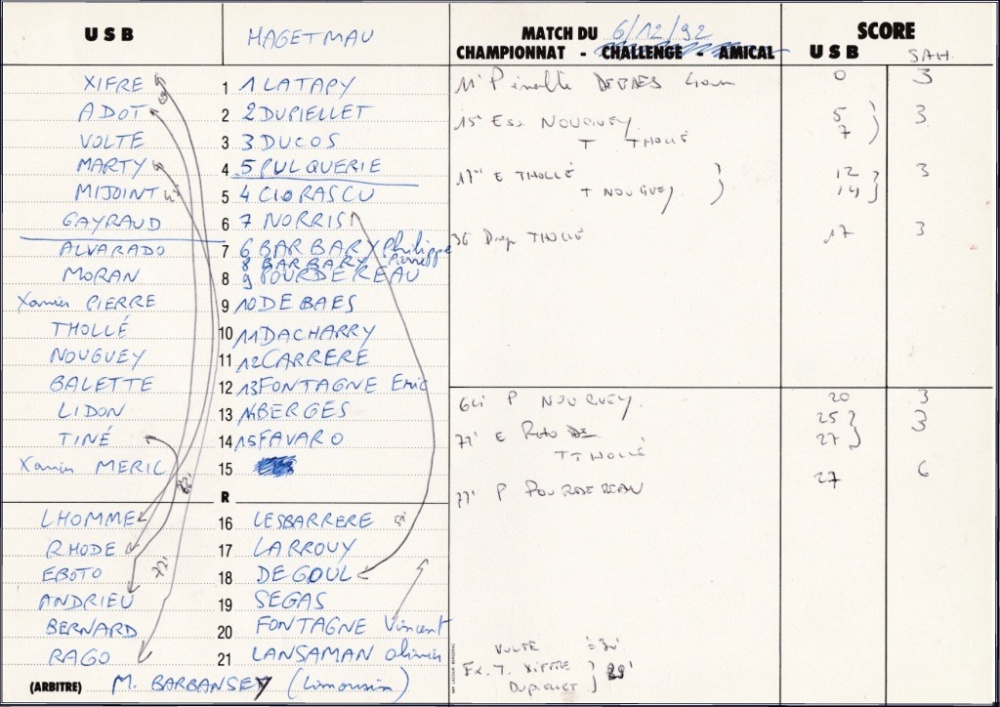 USB HAGETMAU MATCH DU 6/12/92 SCORE
CHAMPIONNAT - CHALLENGE - AMICAL USB SAH.
XIFRE 1 1 LATAPY
ADOT 2 2 DUPIELLET
VOLTE 3 3 DUCOS
MARTY 4 5 PULQUERIE
MIJOINT 5 4 CIORASCU
GAYRAUD 6 7 NORRIS
ALVARADO 7 6 BARBARY Philippe
8 BARBARY
MORAN 8 9 POURDEREAU
Xavier PIERRE 9 10 DEBAES
THOLLÉ 10 11 DACHARRY
NOUGUEY 11 12 CARRERE
BALETTE 12 13 FONTAGNE Eric
LIDON 13 14 BERGES
TINÉ 14 15 FAVARO
Xavier MERIC 15
R
LHOMME 16 LESBARRERE
RHODE 17 LARROUY
EBOTO 18 DEGOUL
ANDRIEU 19 SEGAS
BERNARD 20 FONTAGNE Vincent
RAGO 21 LANSAMAN Olivier
(ARBITRE) M. BARBANSEY (Limousin)
11' Pénalité DEBAES 40m 0 3
15' Ess. NOUGUEY 5 3
T THOLLÉ 7
17' E THOLLÉ 12 3
T NOUGUEY 14
36 Drop THOLLÉ 17 3
P NOUGUEY 20 3
71' E 25 3
T THOLLÉ 27
77' P POURDEREAU 27 6
VOLTE
XIFRE
DUPIELLET